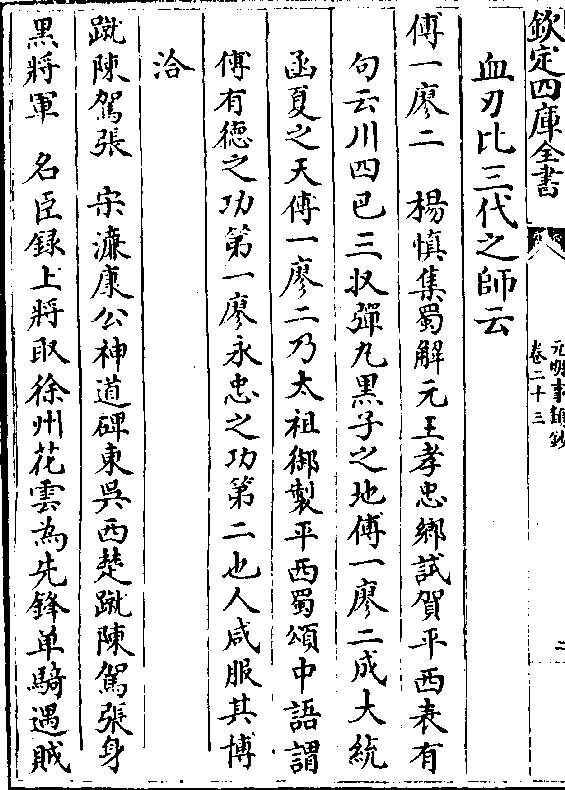 欽定四庫全書
元明事類鈔
卷二十三
二
血刃比三代之師云
傅一廖二　楊慎集蜀解元王孝忠鄉試賀平西表有
句云川四巴三収彈丸黒子之地傅一廖二成大統
函夏之天傅一廖二乃太祖御製平西蜀頌中語謂
傅有徳之功第一廖永忠之功第二也人咸服其博
洽
蹴陳駕張　宋濂康公神道碑東吳西楚蹴陳駕張身
黒將軍　名臣録上將取徐州花雲為先鋒单騎遇賊